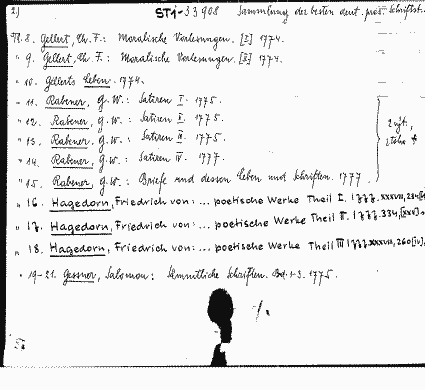 2) STI-33908 Sammlung der besten deut. pros. Schriftst.
Th. 8. Gellert, Ch. F.: Moralische Vorlesungen. [I] 1774.
" 9. Gellert, Ch. F.: Moralische Vorlesungen. [II] 1774.
" 10. Gellerts Leben. 1774.
" 11. Rabener, G. W.: Satiren I. 1775.
" 12. Rabener, G. W.: Satiren II. 1775.
" 13. Rabener, G. W.: Satiren III. 1775.
" 14. Rabener, G. W.: Satiren IV. 1777.
" 15. Rabener, G. W.: Briefe und dessen Leben und Schriften. 1777.
" 16. Hagedorn, Friedrich von: ... poetische Werke Theil I. 1777. XXXVIII, 234,
" 17. Hagedorn, Friedrich von: ... poetische Werke Theil II. 1777. 334, [XXV]
" 18. Hagedorn, Friedrich von: ... poetische Werke Theil III 1777. XXXVIII, 260 [IV],
" 19-21. Gessner, Salomon: Sämmtliche Schriften. Bd. 1-3. 1775.